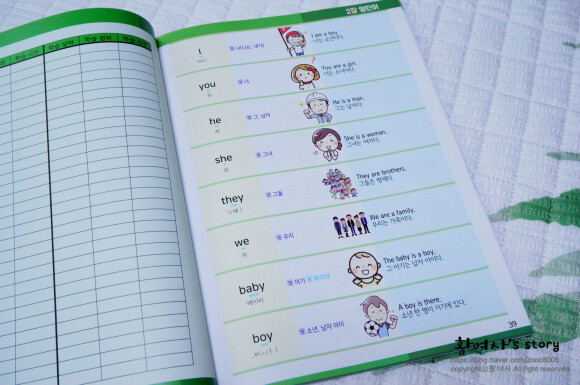 학습 날짜
2장 영단어
I
아이
뜻 나, 나는, 내가
I am a boy.
나는 소년이다.
you
유
뜻 너
You are a girl.
너는 소녀이다.
he
히
뜻 그, 남자
He is a man.
그는 남자이다.
she
쉬
뜻 그녀
She is a woman.
그녀는 여자이다.
they
뜻 그들
They are brothers.
그들은 형제다.
we
위
뜻 우리
We are a family.
우리는 가족이다.
baby
베이비
뜻 아기
The baby is a boy.
그 아기는 남자 아이다.
boy
뜻 소년, 남자 아이
A boy is there.
소년 한 명이 거기에 있다.
39
황여사's story
https://blog.naver.com/zooc8005
copyright@황여사 All right reserved